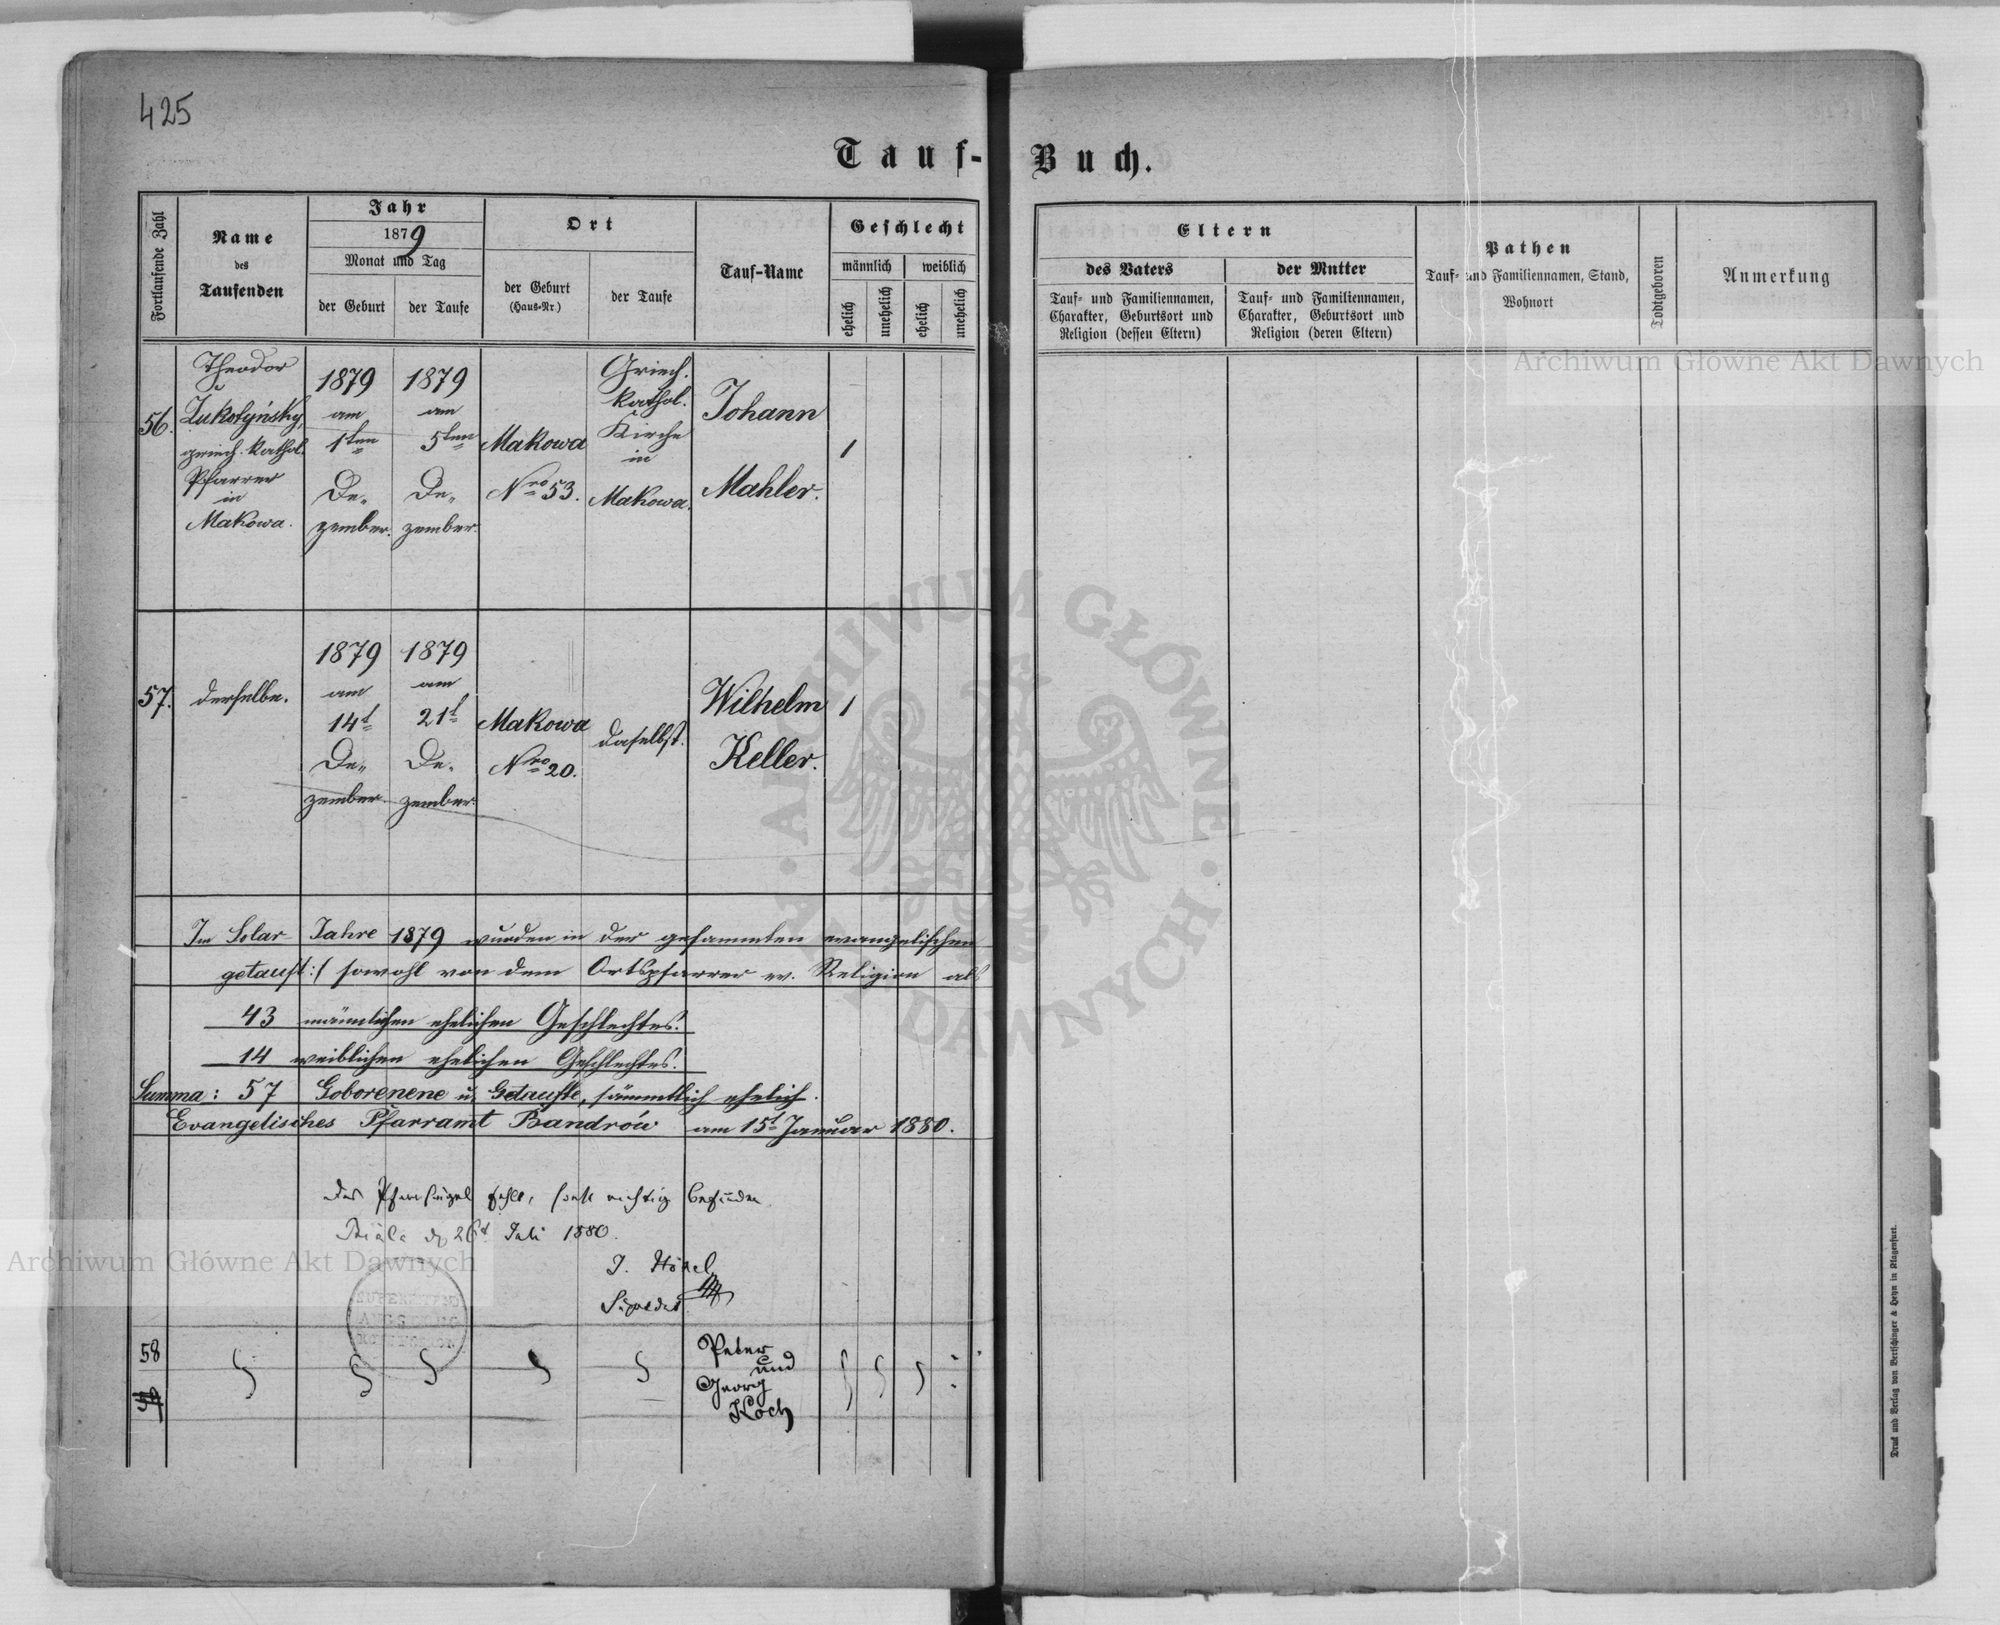 425
Tauf-Buch.
Fortlaufende Zahl
Name
des
Taufenden
Jahr
1879
Monat und Tag
der Geburt
der Taufe
Ort
der Geburt
(Haus-Nr.)
der Taufe
Tauf-Name
Geschlecht
männlich
weiblich
ehelich
unehelich
ehelich
unehelich
Eltern
des Vaters
Tauf- und Familiennamen,
Charakter, Geburtsort und
Religion (dessen Eltern)
der Mutter
Tauf- und Familiennamen,
Charakter, Geburtsort und
Religion (deren Eltern)
Pathen
Tauf- und Familiennamen, Stand,
Wohnort
Todtgeboren
Anmerkung
56.
Theodor
Żukotyński,
griech. kathol.
Pfarrer
in
Makowa.
1879
am
1ten
De„
zember.
1879
am
5ten
De„
zember.
Makowa
Nro 53.
Griech.
kathol.
Kirche
in
Makowa.
Johann
Mahler.
1
57.
derselbe.
1879
am
14t
De„
zember.
1879
am
21t
De„
zember.
Makowa
Nro 20.
daselbst.
Wilhelm
Keller.
1
Im Solar Jahre 1879 wurden in der gesammten evangelischen
getauft :/ sowohl von dem Ortspfarrer ev. Religion als
43 männlichen ehelichen Geschlechtes.
14 weiblichen ehelichen Geschlechtes.
Summa: 57 Goborenene u. Getaufte, sämmtlich ehelich.
Evangelisches Pfarramt Bandrów am 15t Januar 1880.
Das Pfarrsiegel fehlt, sonst richtig befunden
Biala d. 26t. Juli 1880.
J. Hönel
Supedt
SUPERINTEND
AUGSBURG
58
Peter
und
Georg
Koch
Druck und Verlag von Bertschinger & Heyn in Klagenfurt.
Archiwum Główne Akt Dawnych
Archiwum Główne Akt Dawnych
· ARCHIWUM GŁÓWNE · AKT DAWNYCH